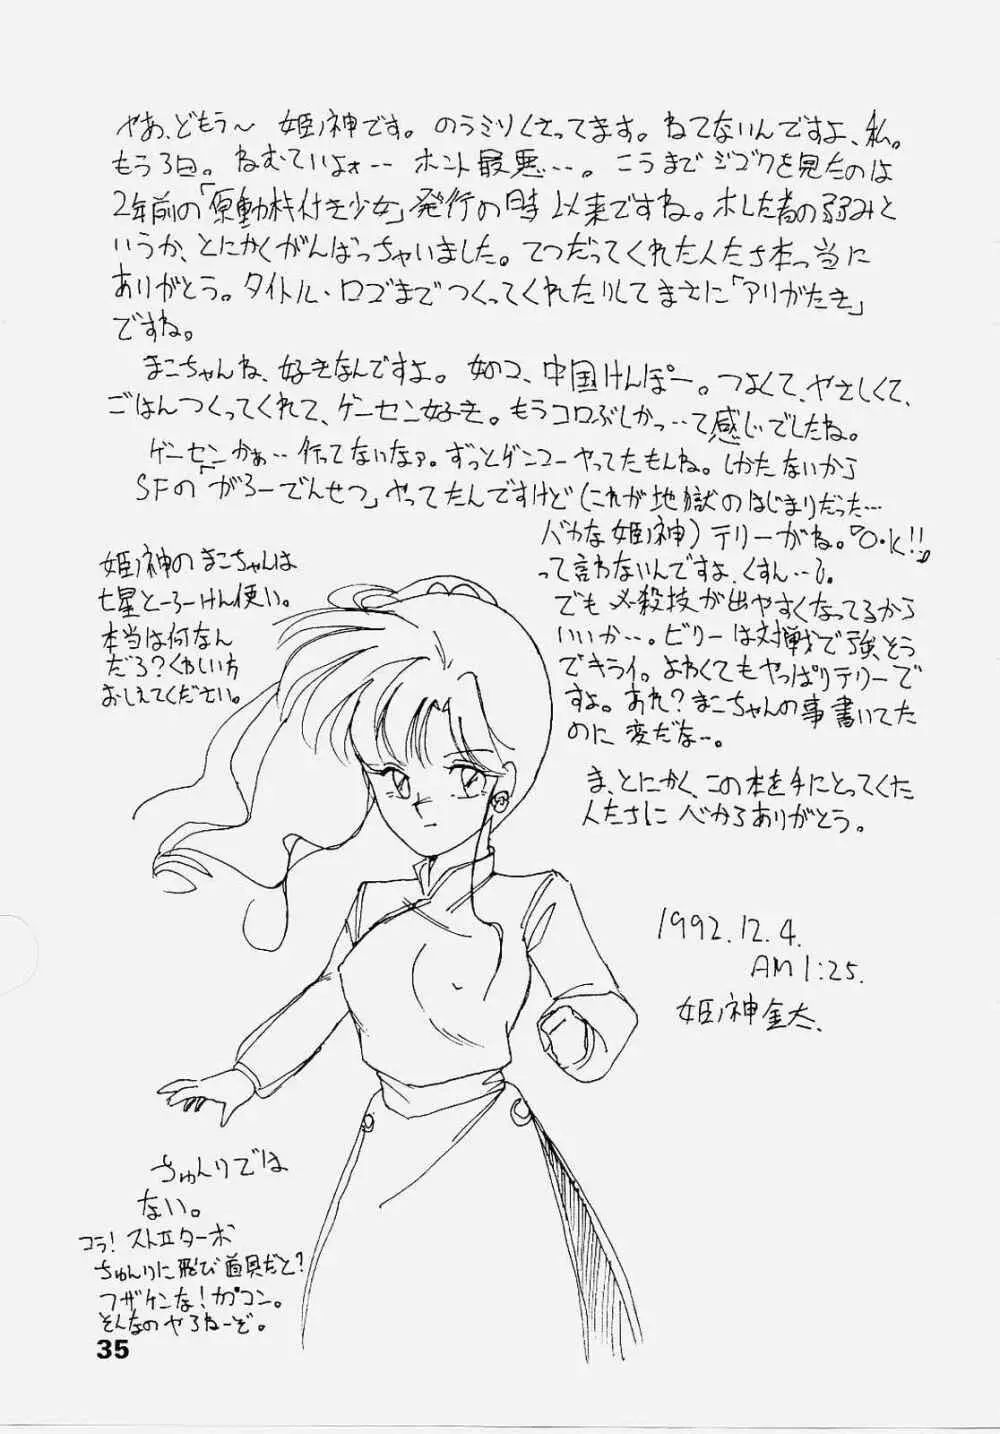 やあ、どもう〜 姫ノ神です。のうミソくさってます。ねてないんですよ、私。
もう3日。ねむていよォ‥‥ ホント最悪‥‥。こうまでジゴクを見たのは
2年前の「原動機付き少女」発行の時以来ですね。ホレた者の弱みと
いうか、とにかくがんばっちゃいました。てつだってくれた人たち本っ当に
ありがとう。タイトル・ロゴまでつくってくれたりしてまさに「アリがたき」
ですね。
まこちゃんね、好きなんですよ。女のコ、中国けんぽー。つよくて、やさしくて、
ごはんつくってくれて、ゲーセン好き。もうコロぶしかっ‥って感じでしたね。
ゲーセンかぁ‥‥行ってないなァ。ずっとゲンコーやってたもんね。しかたないから
SFの「がろーでんせつ」やってたんですけど(これが地獄のはじまりだった‥‥
バカな姫ノ神)テリーがね。『O・K!!』
って言わないんですよ、くすん‥‥。
でも必殺技が出やすくなってるから
いいか‥‥。ビリーは対戦で強そう
でキライ。よわくてもやっぱりテリーで
すよ。あれ?まこちゃんの事書いてた
のに変だな‥‥。
ま、とにかく、この本を手にとってくた
人たちに心からありがとう。
1992.12.4.
AM1:25.
姫ノ神金太.
姫ノ神のまこちゃんは
七星とーろーけん使い。
本当は何なん
だろ?くわしい方
おしえてください。
ちゅんりでは
ない。
コラ!ストⅡターボ
ちゅんりに飛び道具だと?
フザケンな!カプコン。
そんなのやろねーぞ。
35